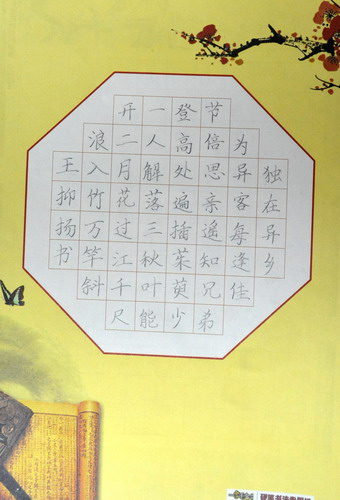 独在异乡
为异客每逢佳
节倍思亲遥知兄弟
登高处遍插茱萸少
一人解落三秋叶能
开二月花过江千尺
浪入竹万竿斜
王抑扬书